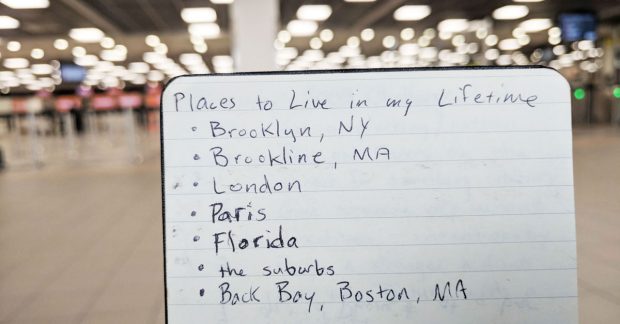 Places to Live in my Lifetime
• Brooklyn, NY
• Brookline, MA
• London
• Paris
• Florida
• the suburbs
• Back Bay, Boston, MA